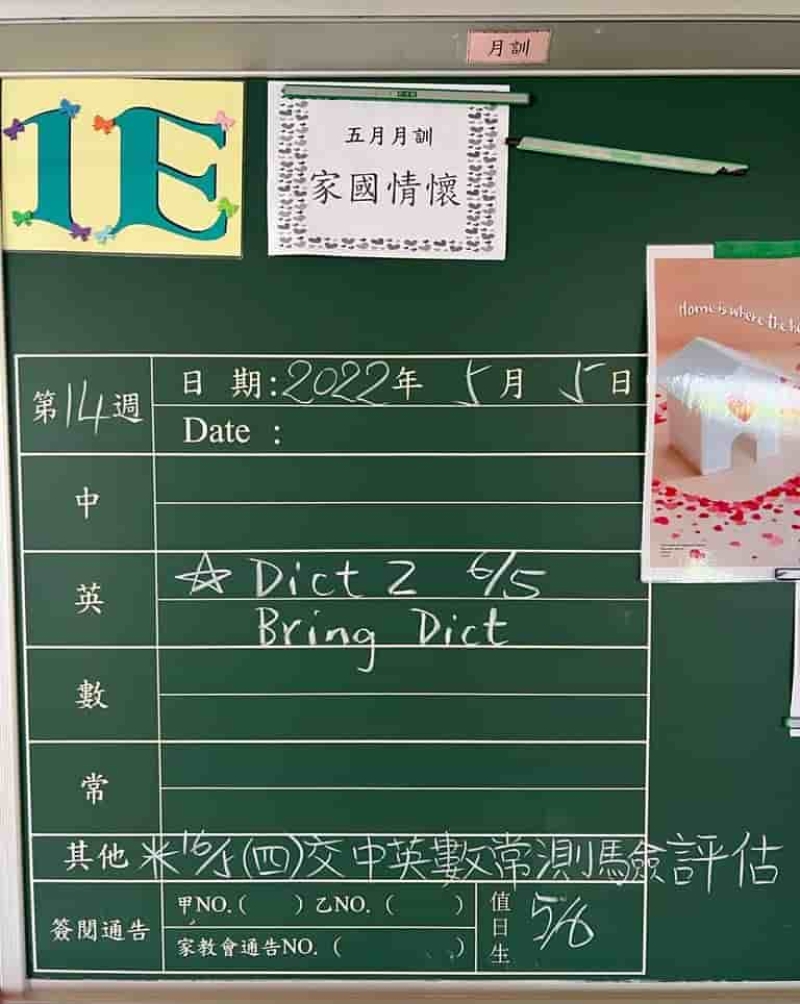 月訓
1E
五月月訓
家國情懷
Home is where the he
第14週
日 期:2022年 5月 5日
Date :
中
英
☆ Dict 2 6/5
Bring Dict
數
常
其他
米16/5(四)交中英數常測驗評估
簽閱通告
甲NO.( ) 乙NO. ( )
家教會通告NO. ( )
值日生
5/6